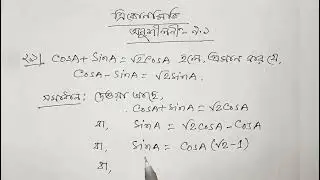 ত্রিকোণমিতি
অনুশীলনী- ৯.১
২১। CosA + SinA = √2 CosA হলে, প্রমাণ কর যে,
CosA - SinA = √2 SinA.
সমাধান: দেওয়া আছে,
CosA + SinA = √2 CosA
বা, SinA = √2 CosA - CosA
বা, SinA = CosA (√2 - 1)
বা,